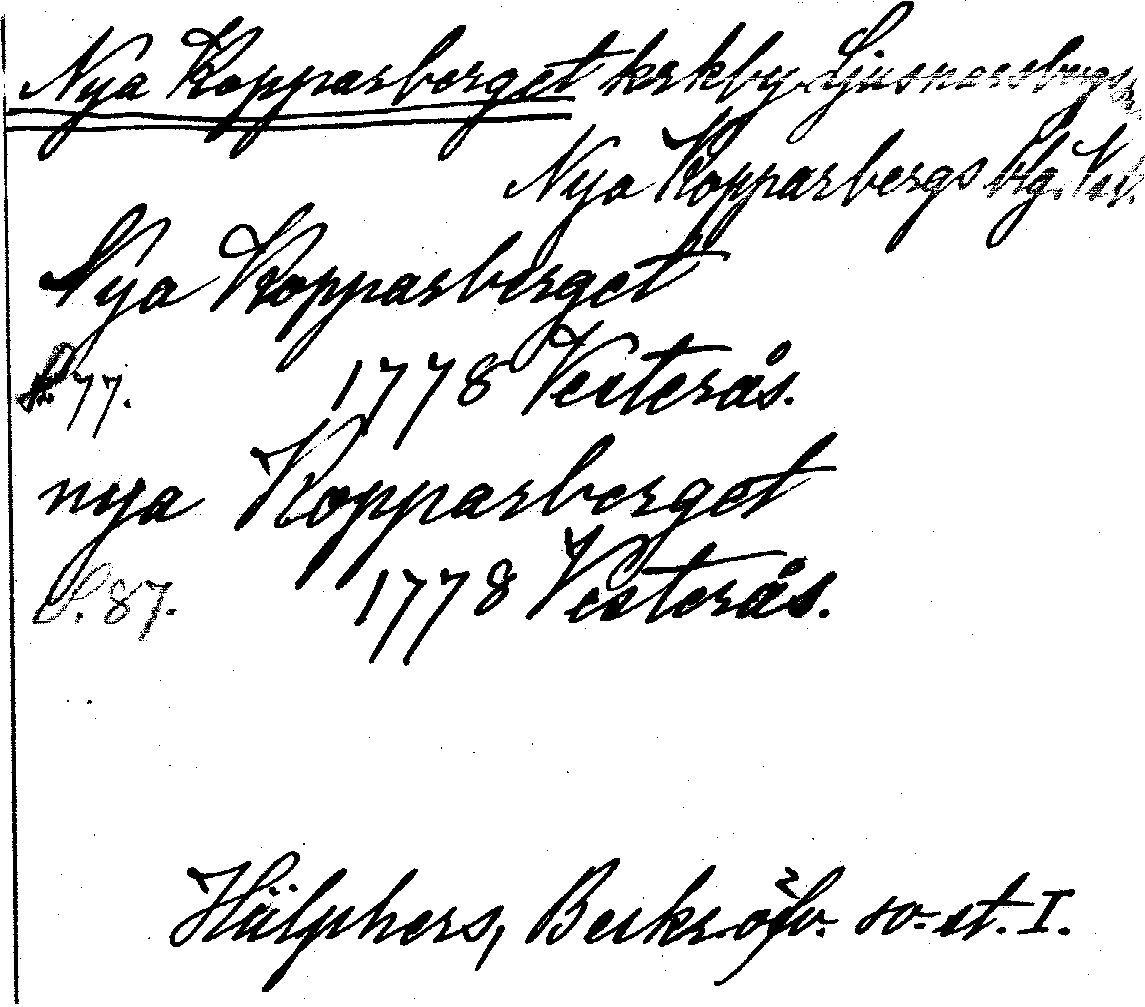 Nya Kopparberget kerkby Ljusnarsbergs
Nya Kopparbergs bg. Vst.
Nya Kopparberget
S. 77. 1778 Vesterås.
nya Kopparberget
S. 87. 1778 Vesterås.
Hülphers, Beskr. so. st. I.